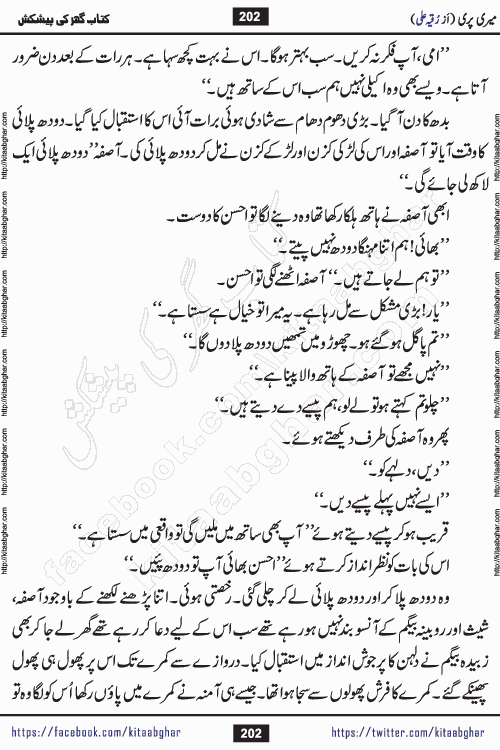 میری پری (از رقیہ علی)
202
کتاب گھر کی پیشکش
’’امی، آپ فکر نہ کریں۔ سب بہتر ہوگا۔ اس نے بہت کچھ سہا ہے۔ ہر رات کے بعد دن ضرور
آتا ہے۔ ویسے بھی وہ اکیلی نہیں ہم سب اس کے ساتھ ہیں۔‘‘
بدھ کا دن آگیا۔ بڑی دھوم دھام سے شادی ہوئی برات آئی اس کا استقبال کیا گیا۔ دودھ پلائی
کا وقت آیا تو آصفہ اور اس کی لڑکی کزن اور لڑکے کزن نے مل کر دودھ پلائی کی۔ آصفہ ’’دودھ پلائی ایک
لاکھ لی جائے گی۔‘‘
ابھی آصفہ نے ہاتھ ہلکا رکھا تھا وہ دینے لگا تو احسن کا دوست۔
’’بھائی! ہم اتنا مہنگا دودھ نہیں پیتے۔‘‘
’’تو ہم لے جاتے ہیں۔‘‘ آصفہ اٹھنے لگی تو احسن۔
’’یار! بڑی مشکل سے مل رہا ہے۔ یہ میرا تو خیال ہے سستا ہے۔‘‘
’’تم پاگل ہو گئے ہو۔ چھوڑو میں تمھیں دودھ پلا دوں گا۔‘‘
’’نہیں مجھے تو آصفہ کے ہاتھ والا پینا ہے۔‘‘
’’چلو تم کہتے ہو تو لے لو، ہم پیسے دے دیتے ہیں۔‘‘
پھر وہ آصفہ کی طرف دیکھتے ہوئے۔
’’دیں، دلہے کو۔‘‘
’’ایسے نہیں پہلے پیسے دیں۔‘‘
قریب ہو کر پیسے دیتے ہوئے ’’آپ بھی ساتھ میں ملیں گی تو واقعی میں سستا ہے۔‘‘
اس کی بات کو نظر انداز کرتے ہوئے ’’احسن بھائی آپ تو دودھ پئیں۔‘‘
وہ دودھ پلا کر اور دودھ پلائی لے کر چلی گئی۔ رخصتی ہوئی۔ اتنا پڑھنے لکھنے کے باوجود آصفہ،
شیث اور روبینہ بیگم کے آنسو بند نہیں ہو رہے تھے سب اس کے لیے دعا کر رہے تھے گھر لے جا کر بھی
زبیدہ بیگم نے دلہن کا پر جوش انداز میں استقبال کیا۔ دروازے سے کمرے تک اس پر پھول ہی پھول
پھینکے گئے۔ کمرے کا فرش پھولوں سے سجا ہوا تھا۔ جیسے ہی آمنہ نے کمرے میں پاؤں رکھا اُس کو لگا وہ تو
کتاب گھر کی پیشکش
facebook.com/kitaabghar
kitaabghar.com
http://kitaabghar.com
https://facebook.com/kitaabghar
202
https://twitter.com/kitaabghar